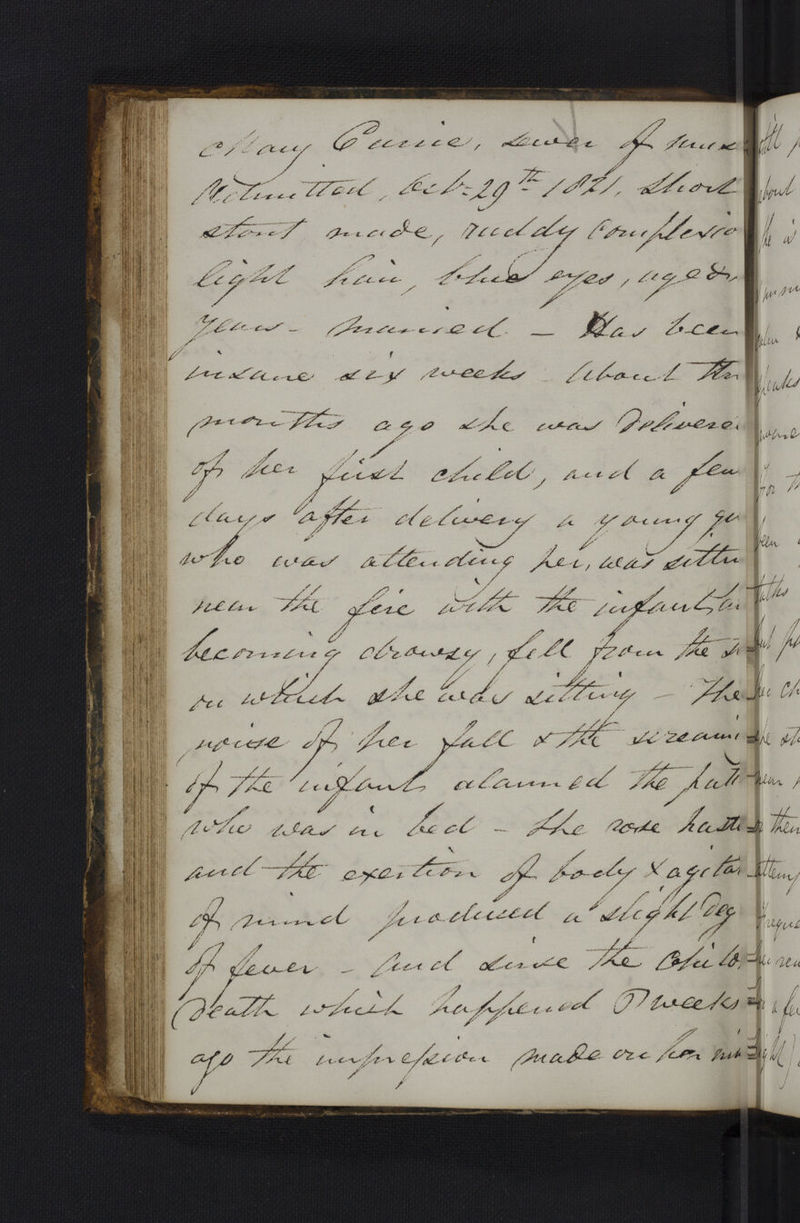 Mary Currie, sewer of mus
Admitted, Octr. 29th 1821, Short
stout made, ruddy Complexio
light hair, blue eyes, aged
years - married - Has been
insane six weeks About thr
months ago she was Delivered
of her first child, and a few
days after delivery a young gi
who was attending her, was sittin
near the fire with the infant, &
becoming drowsy, fell from the s
on which she was sitting - The
noise of her fall & the screami
of the infant alarmed the pati
who was in bed - She rose hasti
and the exertion of body & agitat
of mind produced a slight Deg
of fever - And since the Child
Death which happened 5 weeks
ago the impression made on her min